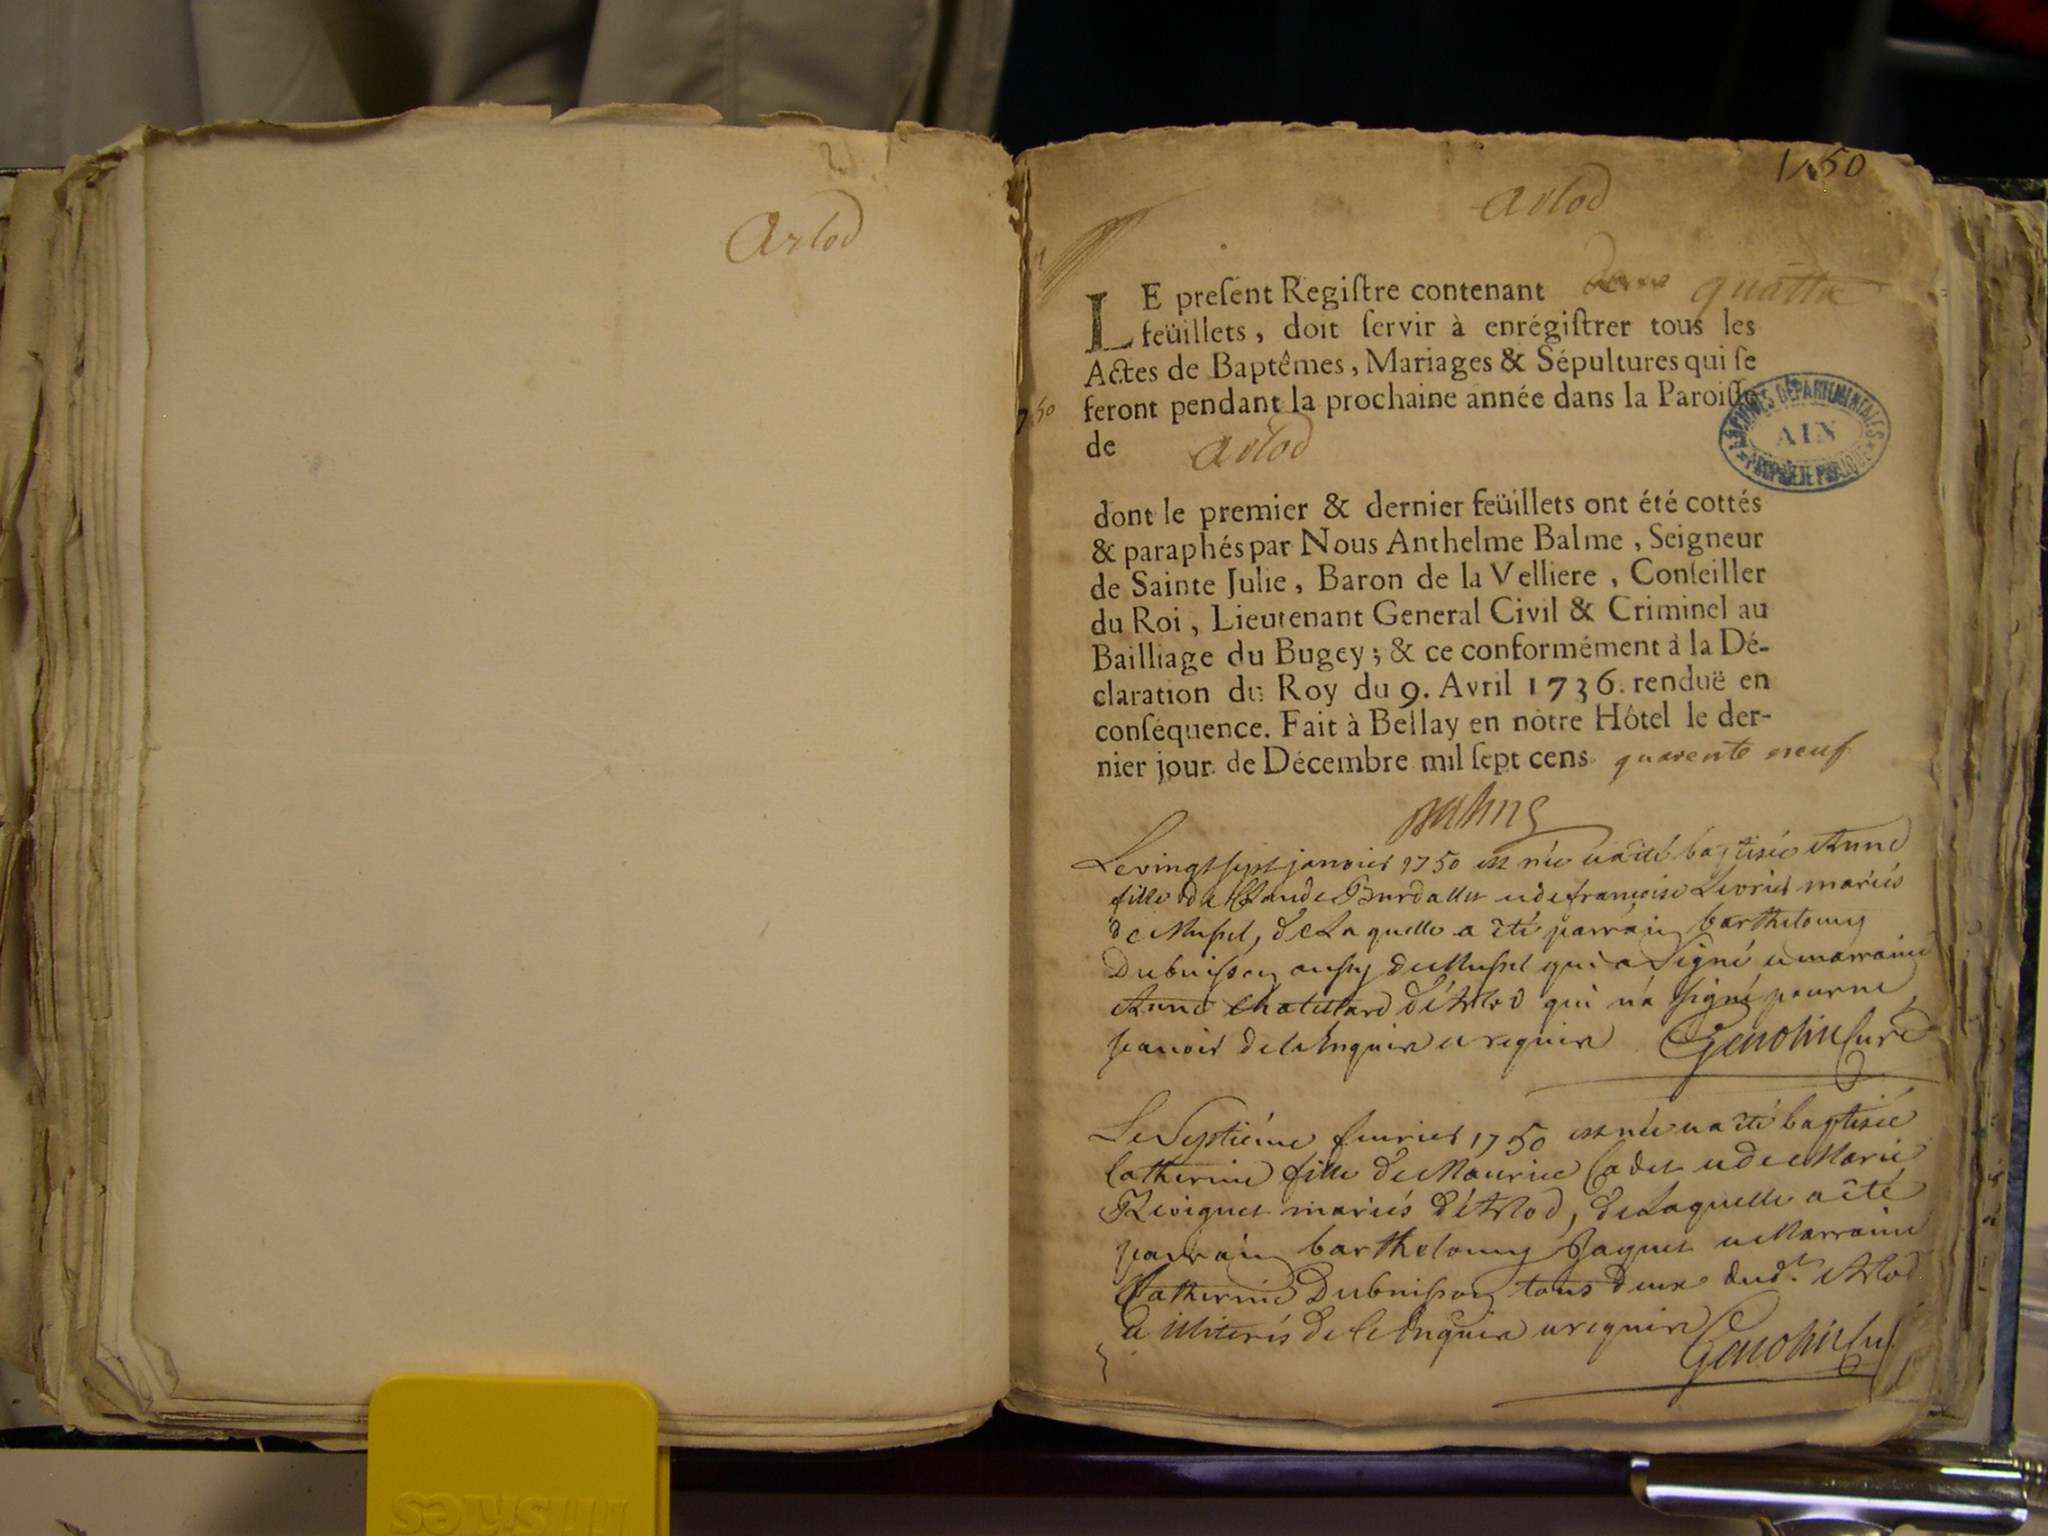 Arlod
1750
arlod
LE preſent Regiſtre contenant quattre
feüillets, doit ſervir à enrégiſtrer tous les
Actes de Baptêmes, Mariages & Sépultures qui ſe
feront pendant la prochaine année dans la Paroiſſe
de arlod
ARCHIVES DÉPARTEMENTALES
AIN
PROPRIÉTÉ PUBLIQUE
dont le premier & dernier feüillets ont été cottés
& paraphés par Nous Anthelme Balme, Seigneur
de Sainte Julie, Baron de la Velliere, Conſeiller
du Roi, Lieutenant General Civil & Criminel au
Bailliage du Bugey; & ce conformément à la Dé-
claration du Roy du 9. Avril 1736. renduë en
conſéquence. Fait à Bellay en nôtre Hôtel le der-
nier jour de Décembre mil ſept cens quarente neuf
Balme
Le vingt sept janvier 1750 est née et a été baptisée Anne
fille de Claude Burdallet et de francoise Levrier mariés
de Mussel, de Laquelle a été parrain barthelemy
Dubuisson aussy de Mussel qui a Signé et marraine
Anne Chatelard d'Arlod qui n'a signé pour ne
scavoir de ce Enquise et requise Genolin Curé
Le Septiéme fevrier 1750 est née et a été baptisée
Catherine fille de Maurice Cadet et de Marie
mariés d'Arlod, de Laquelle a été
parrain barthelemy Jaquet et Marraine
Catherine Dubuisson tous deux dud.t Arlod
et illiterés de ce Enquis et requis
Genolin Curé